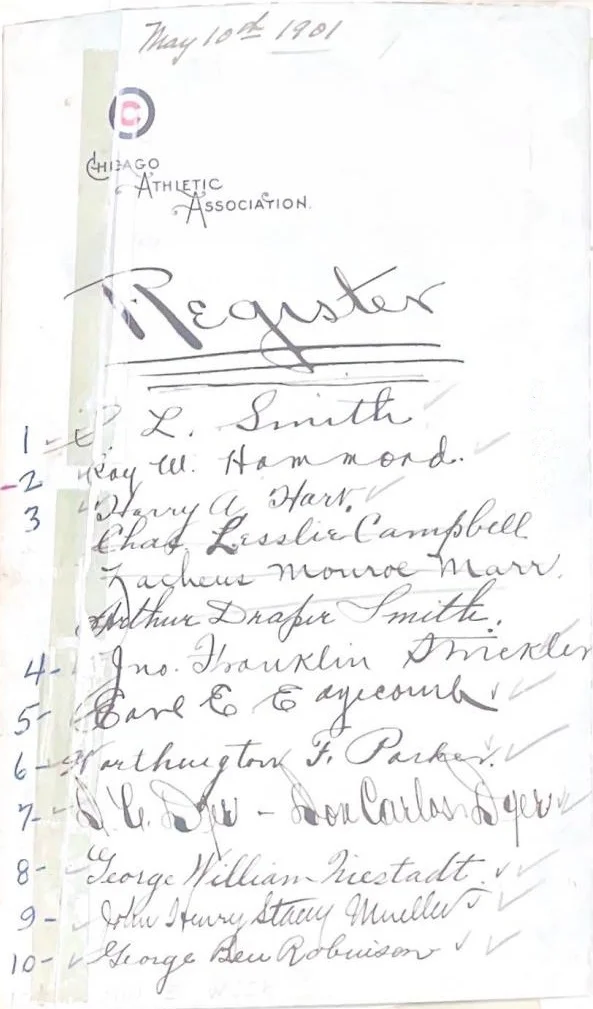 May 10th 1901
C
CHICAGO
ATHLETIC
ASSOCIATION.
Register
1 L. Smith
2 Roy W. Hammond.
3 Harry A Hart.
Chas. Lesslie Campbell
Zacheus Monroe Marr.
Arthur Draper Smith.
4- Jno. Franklin Strickler
5- Earl E Edgecomb
6- Worthington F. Parker.
7- D. C. Dyer - Don Carlos Dyer
8- George William Niestadt
9- John Henry Stacy Mueller
10- George Ben Robinson